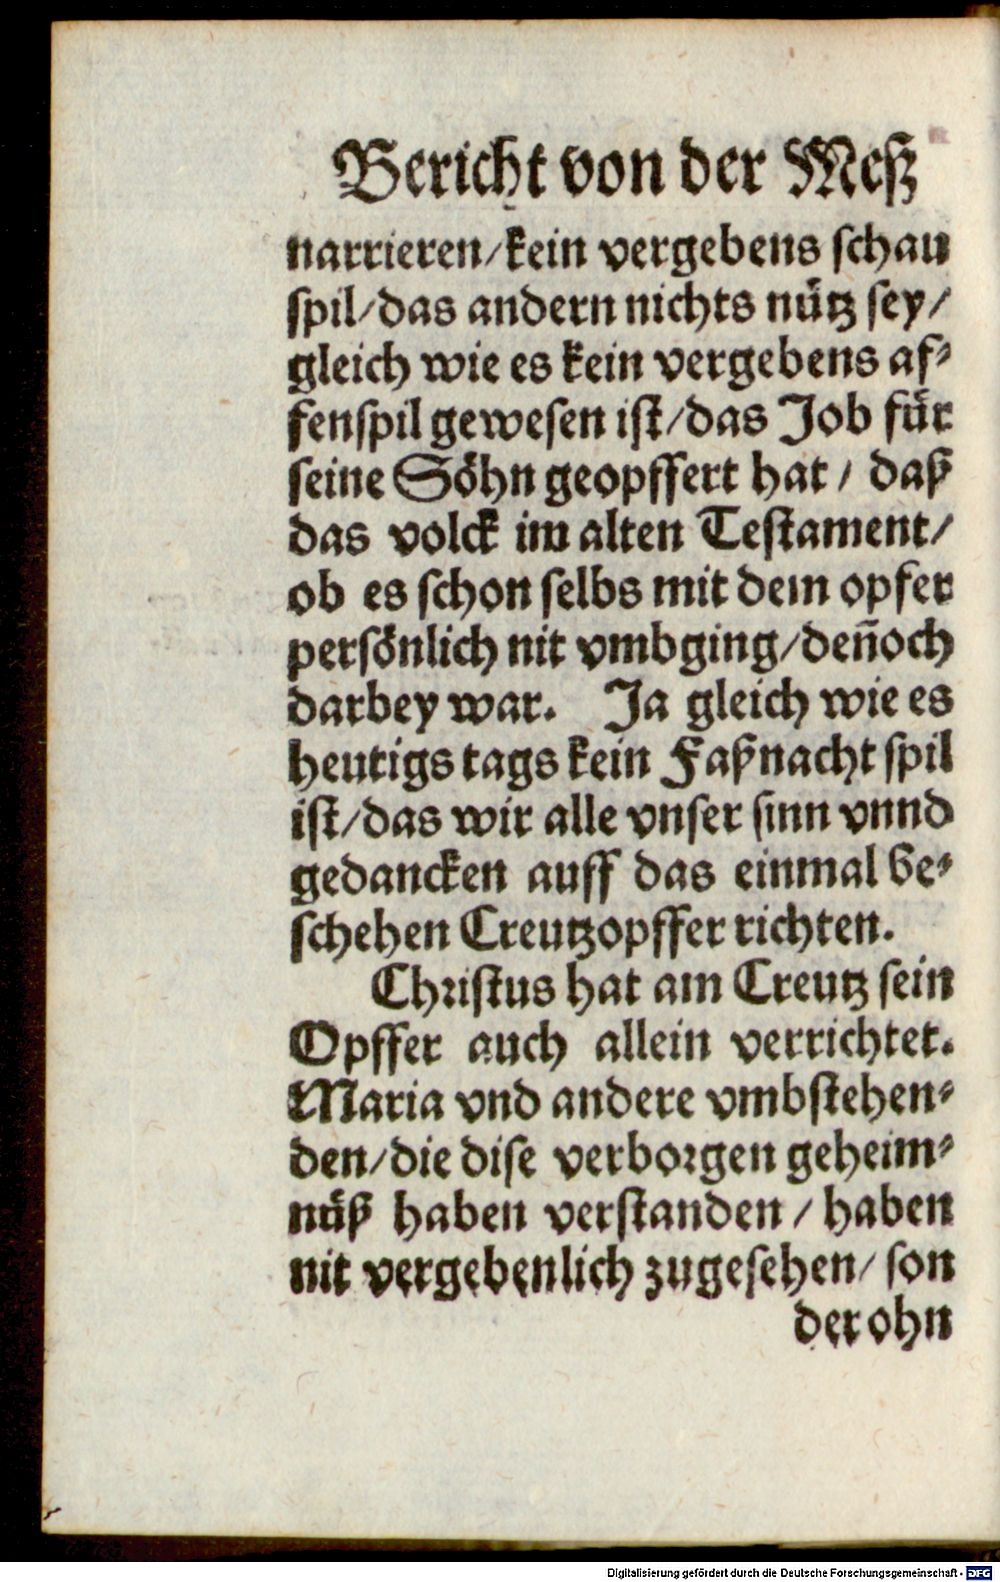 Bericht von der Meß
narrieren/kein vergebens schau
spil/das andern nichts nütz sey/
gleich wie es kein vergebens af⸗
fenspil gewesen ist/das Job für
seine Söhn geopffert hat / daß
das volck im alten Testament/
ob es schon selbs mit dem opfer
persönlich nit vmbging/deñoch
darbey war. Ja gleich wie es
heutigs tags kein Faßnacht spil
ist/das wir alle vnser sinn vnnd
gedancken auff das einmal be⸗
schehen Creutzopffer richten.
Christus hat am Creutz sein
Opffer auch allein verrichtet.
Maria vnd andere vmbstehen⸗
den/die dise verborgen geheim⸗
nüß haben verstanden / haben
nit vergebenlich zugesehen/ son
der ohn
Digitalisierung gefördert durch die Deutsche Forschungsgemeinschaft - DFG